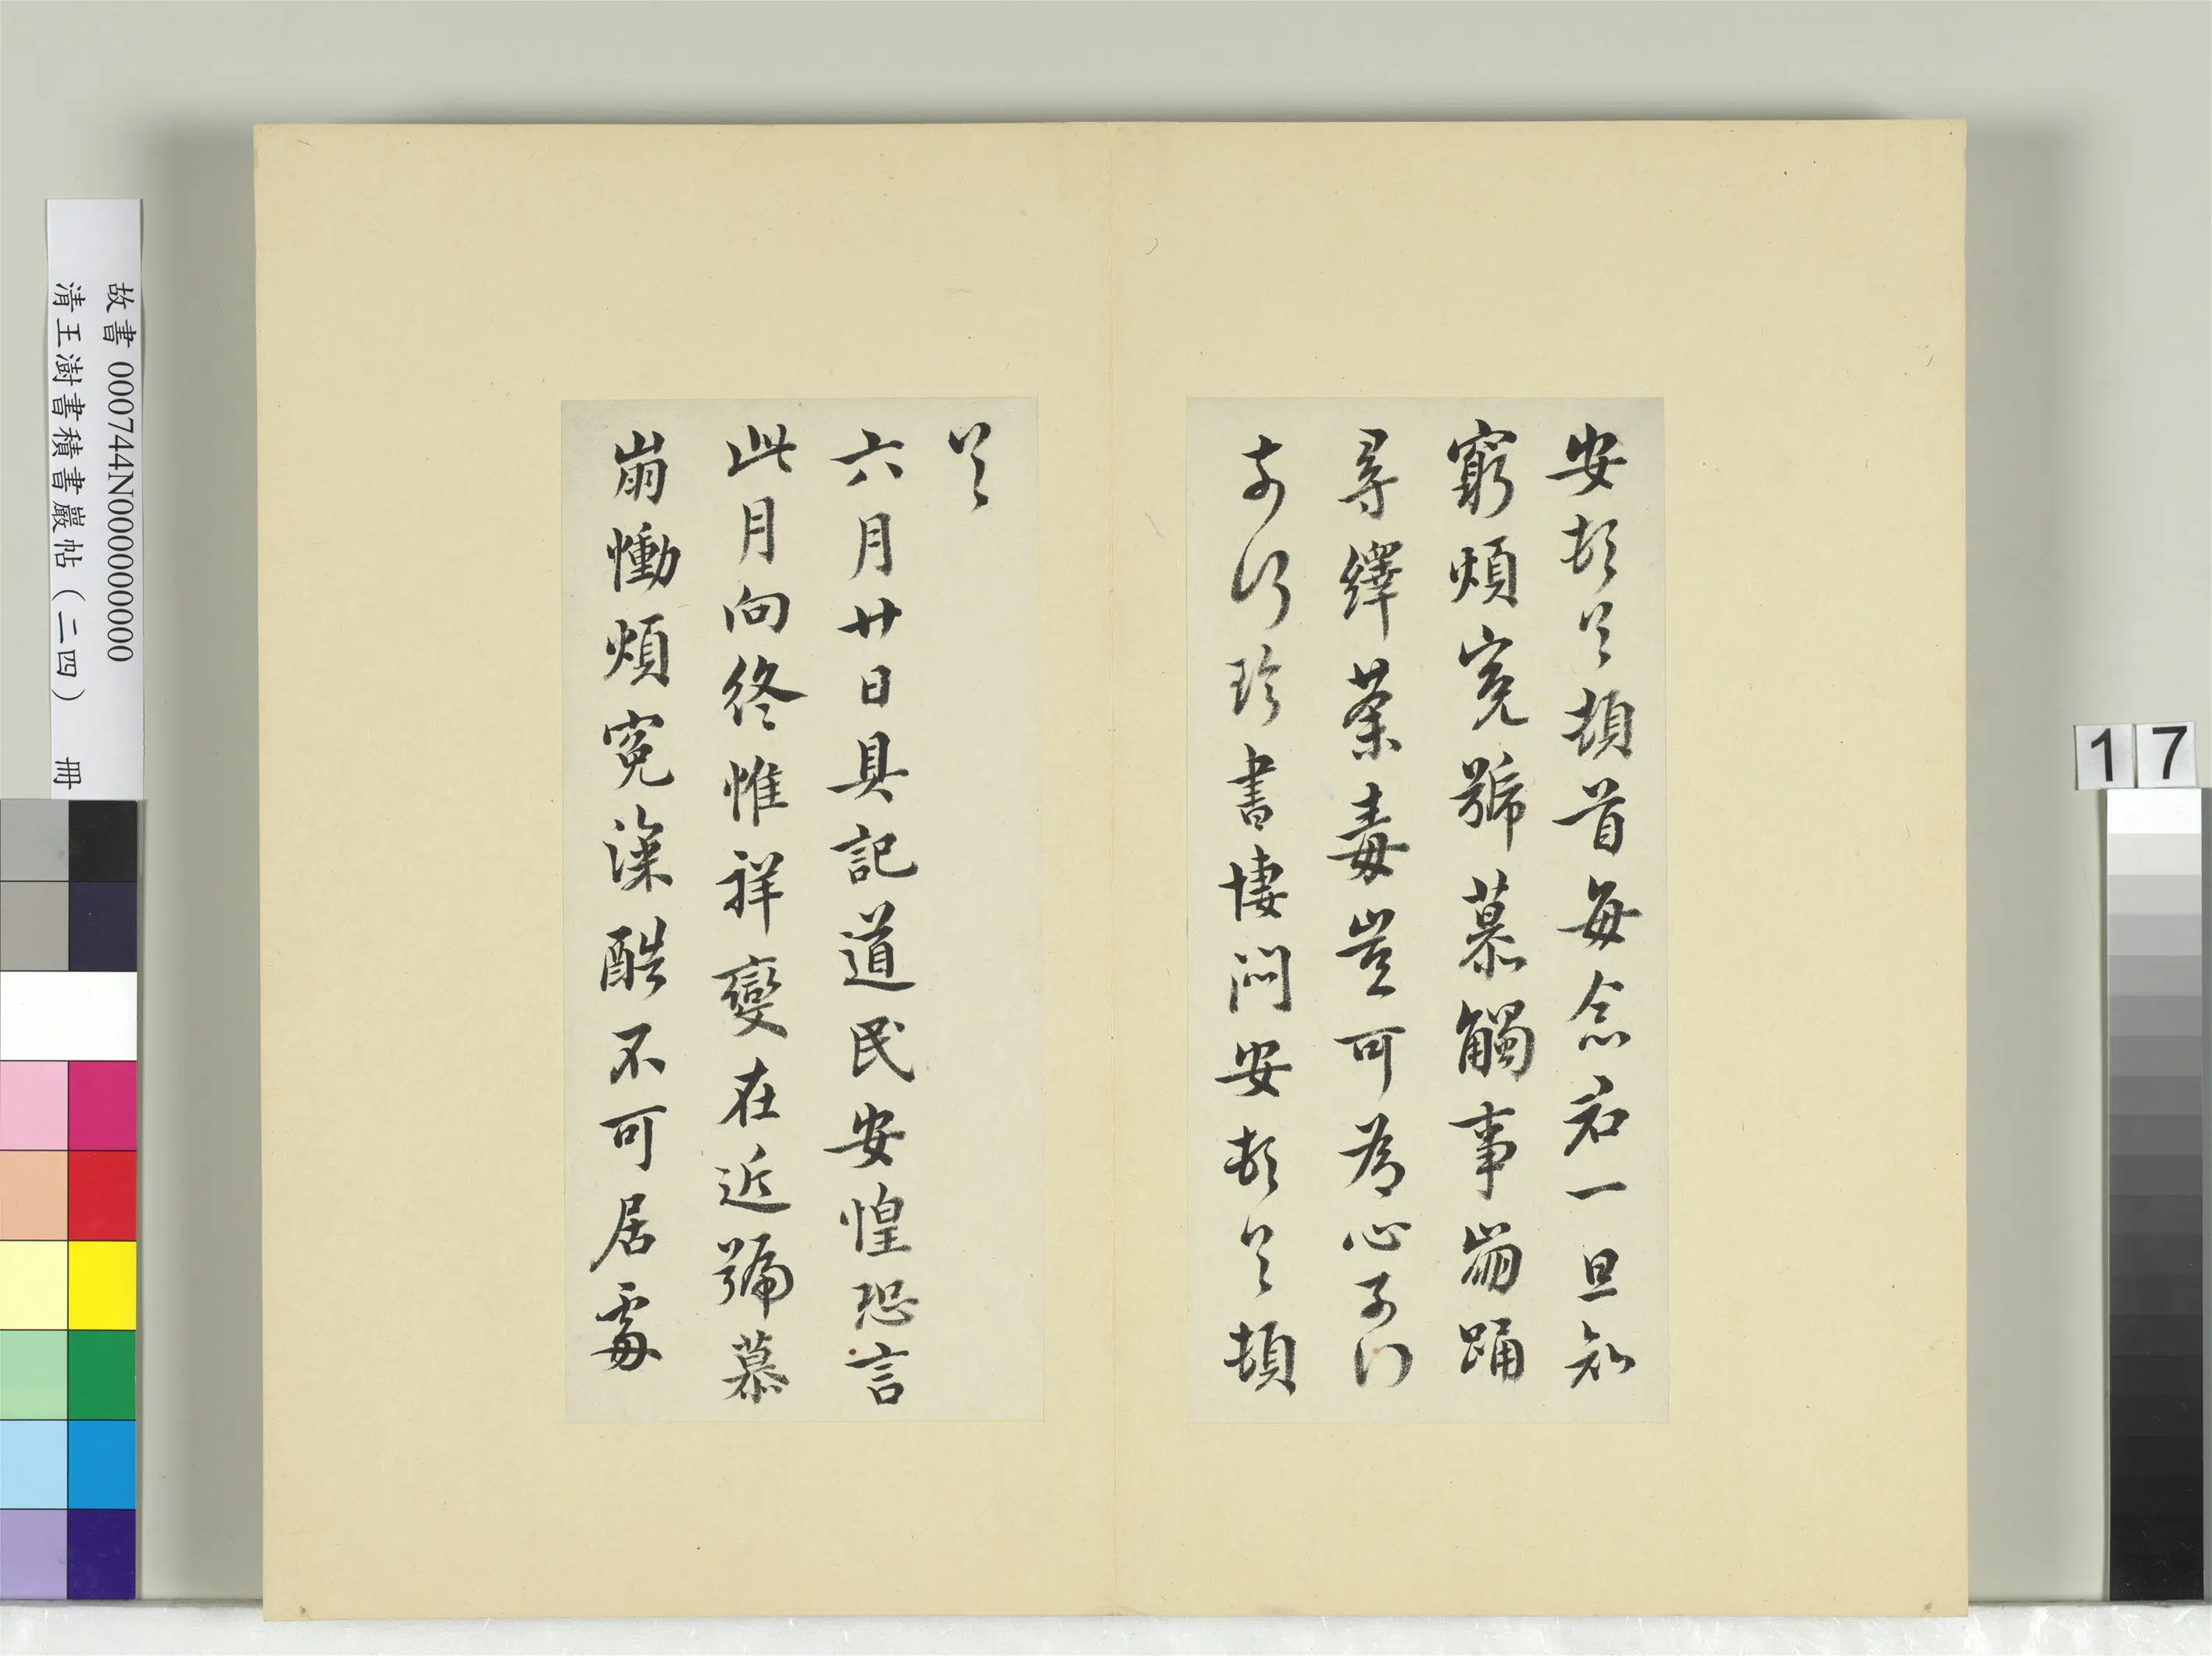 安頓首頓首每念君一旦知
窮煩冤號慕觸事崩踊
尋繹荼毒豈可為心奈何
奈何臨書悽悶安頓首頓
首
六月廿日具記道民安惶恐言
此月向終惟祥變在近號慕
崩慟煩冤深酷不可居處
故書 000744N000000000
清王澍書積書巖帖（二四） 冊
17